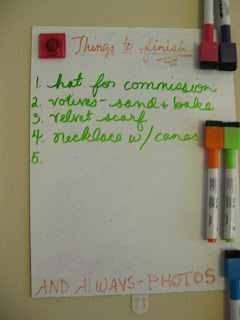 Things to finish
1. hat for commission
2. votives - sand & bake
3. velvet scarf
4. necklace w/ canes
5.
AND ALWAYS - PHOTOS